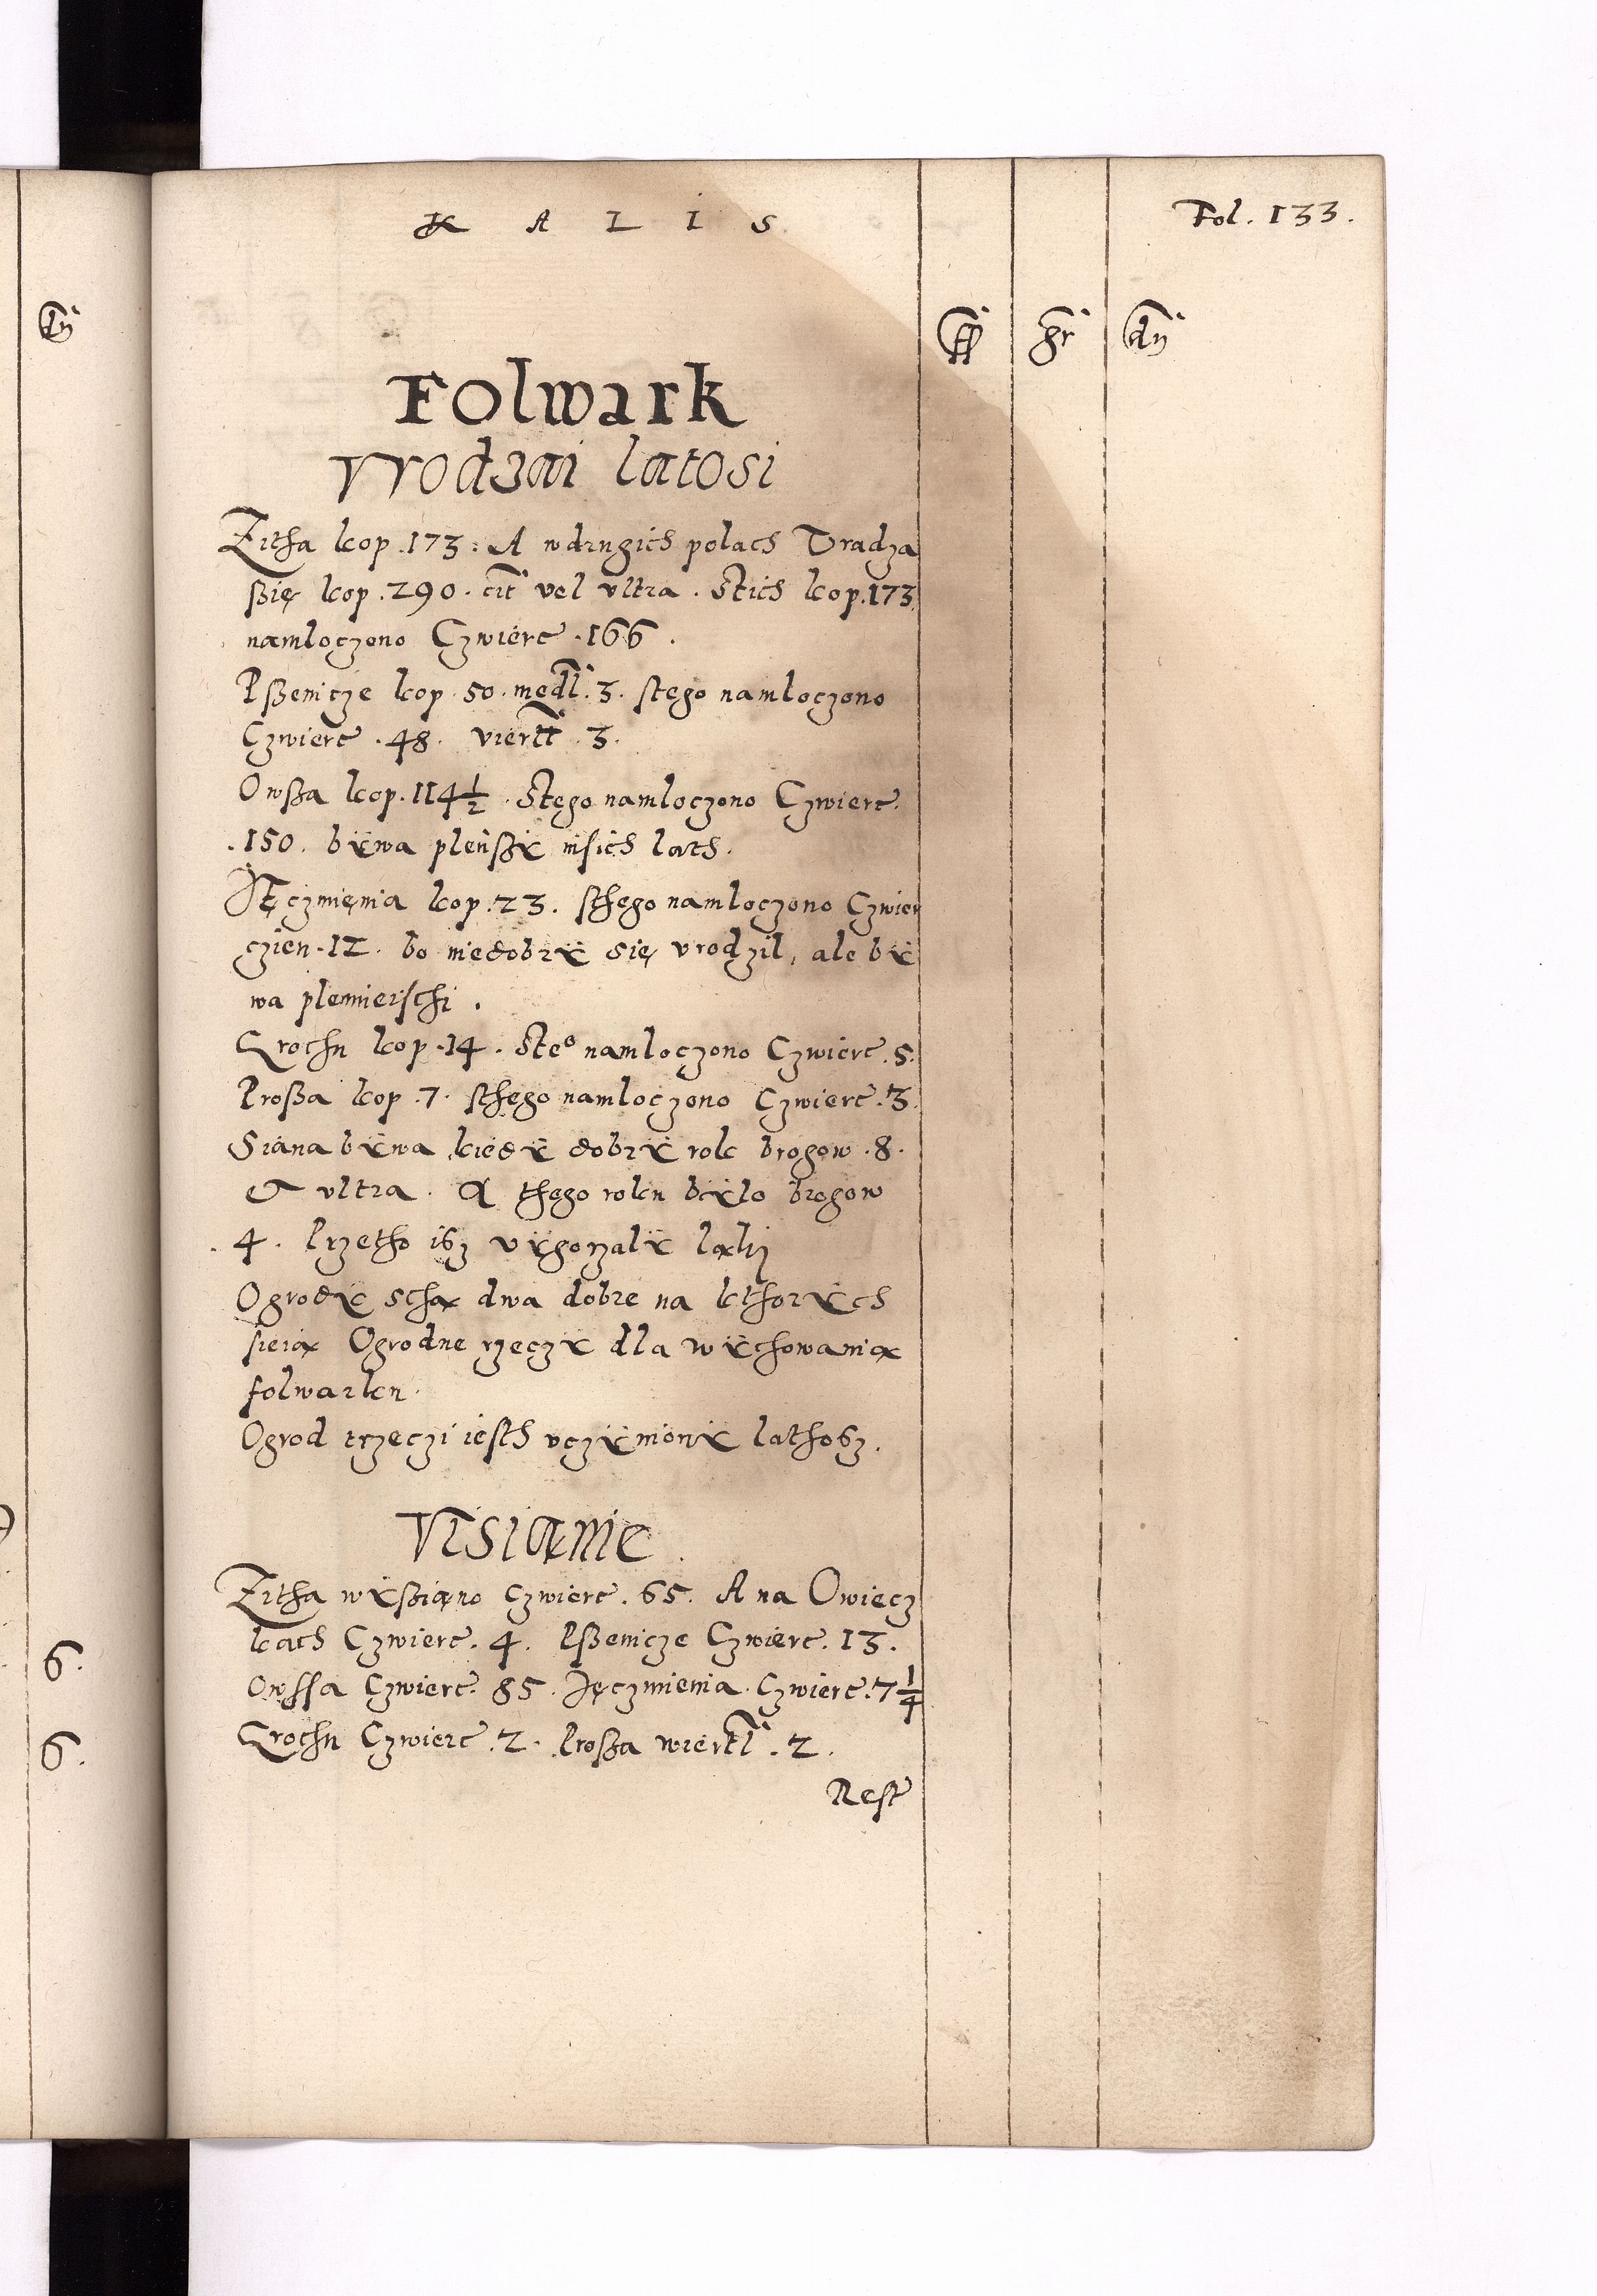 K A L I S
Fol. 133.
ff gr dn
dn
Folwark
Vrodzai latosi
Zitha kop .173. A wdrugich polach Vradza
ßię kop .290. cit vel vltra. Stich kop .173.
namloczono Czwierc .166.
Pßenicze kop .50. mędl. 3. stego namloczono
Czwierc .48. viertl .3.
Owßa kop. 114 1/2. Stego namloczono Czwierc.
.150. bÿwa plenßÿ insich lath.
Jęczmięnia kop .23. sthego namloczono Czwier
czien .12. bo niedobrÿ się vrodzil, ale bÿ
wa plennierschi.
Grochu kop .14. Steo namloczono Czwierc .5.
Proßa kop .7. sthego namloczono Czwierc .3.
Siana bÿwa kiedÿ dobrÿ rok brogow .8.
et vltra. A thego roku bÿlo brogow
.4. Przetho isz vÿgorzalÿ ląki
Ogrodÿ sthą dwa dobre na kthorÿch
sieią Ogrodne rzeczÿ dla wÿchowanią
folwarku.
Ogrod trzeczi iesth vczÿnionÿ lathosz.
Visianie
Zitha wÿßiąno Czwierc .65. A na Owiecz
kach Czwierc .4. Pßenicze Czwierc .13.
Owssa Czwierc .85. Jęczmienia Czwierc .7 1/4
Grochu Czwierc .2. Proßa wiertl .2.
Rest
6.
6.